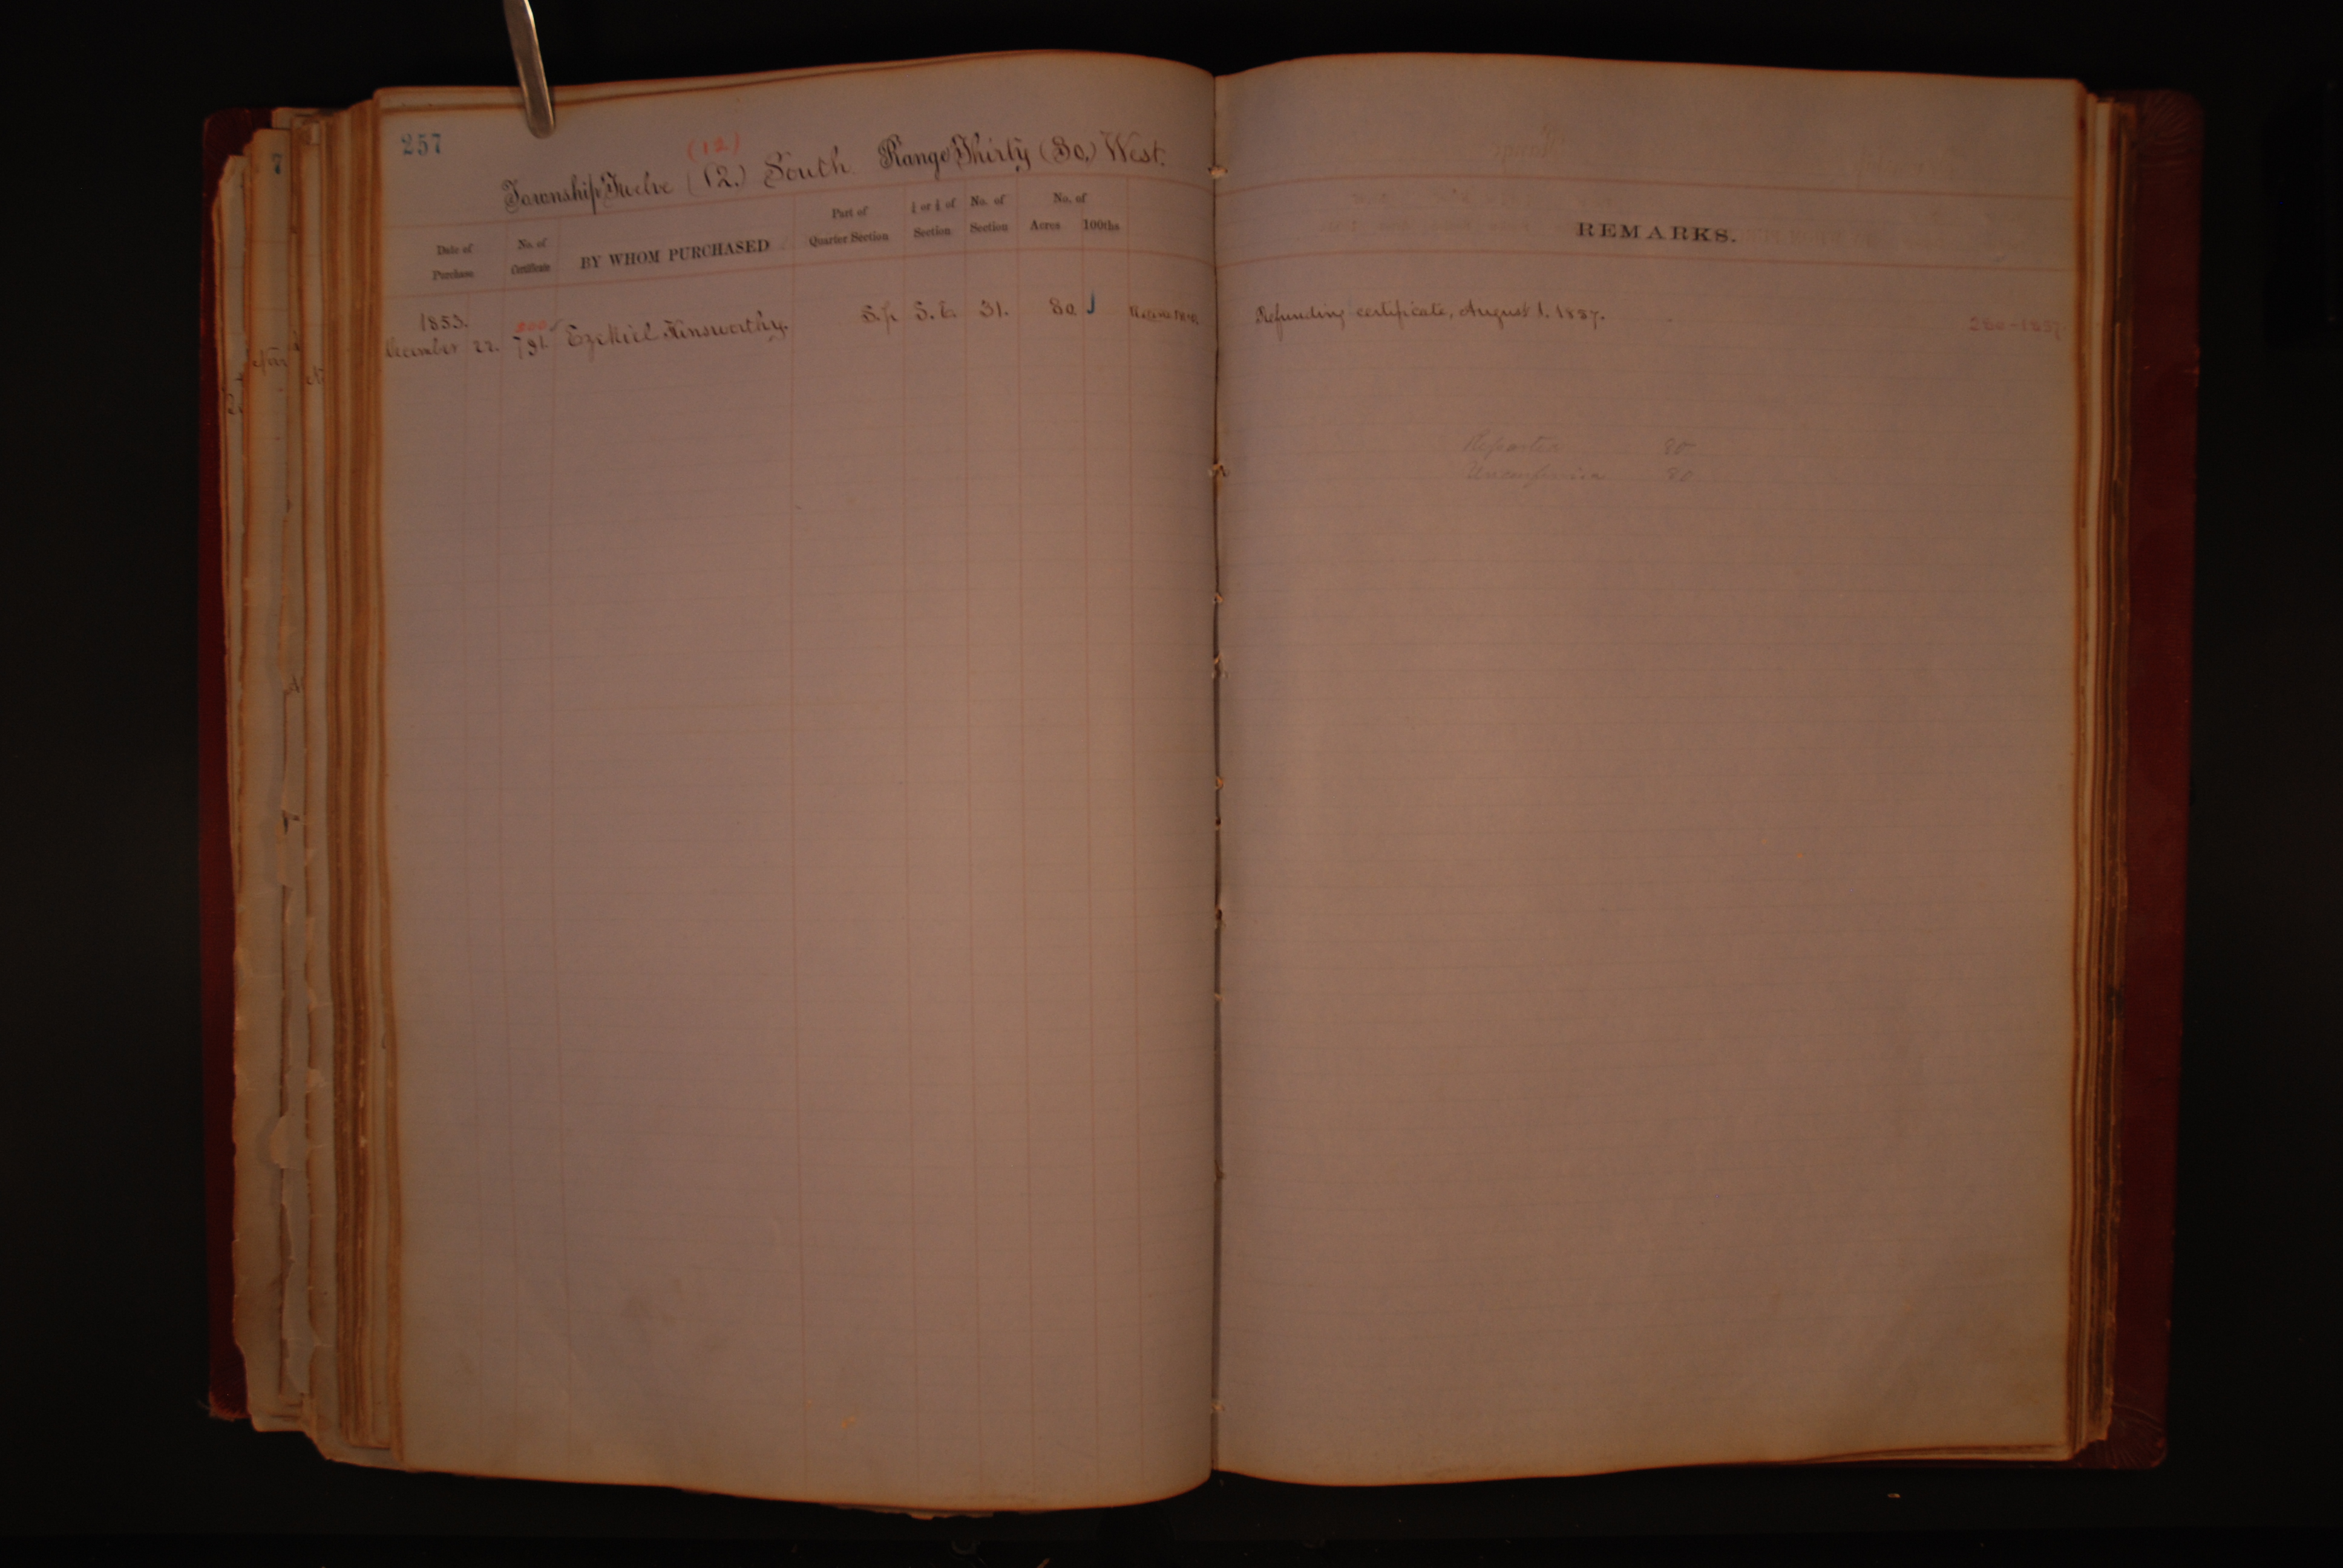 257
(12)
Township Twelve (12.) South Range Thirty (30.) West.
Date of Purchase
No. of Certificate
BY WHOM PURCHASED
Part of Quarter Section
½ or ¼ of Section
No. of Section
No. of
Acres 100ths
REMARKS.
1853.
December 22. 791. Ezekiel Ainsworthy. S.p. S.E. 31. 80
Refunding certificate, August 1. 1857.
280-1857
80
80
7